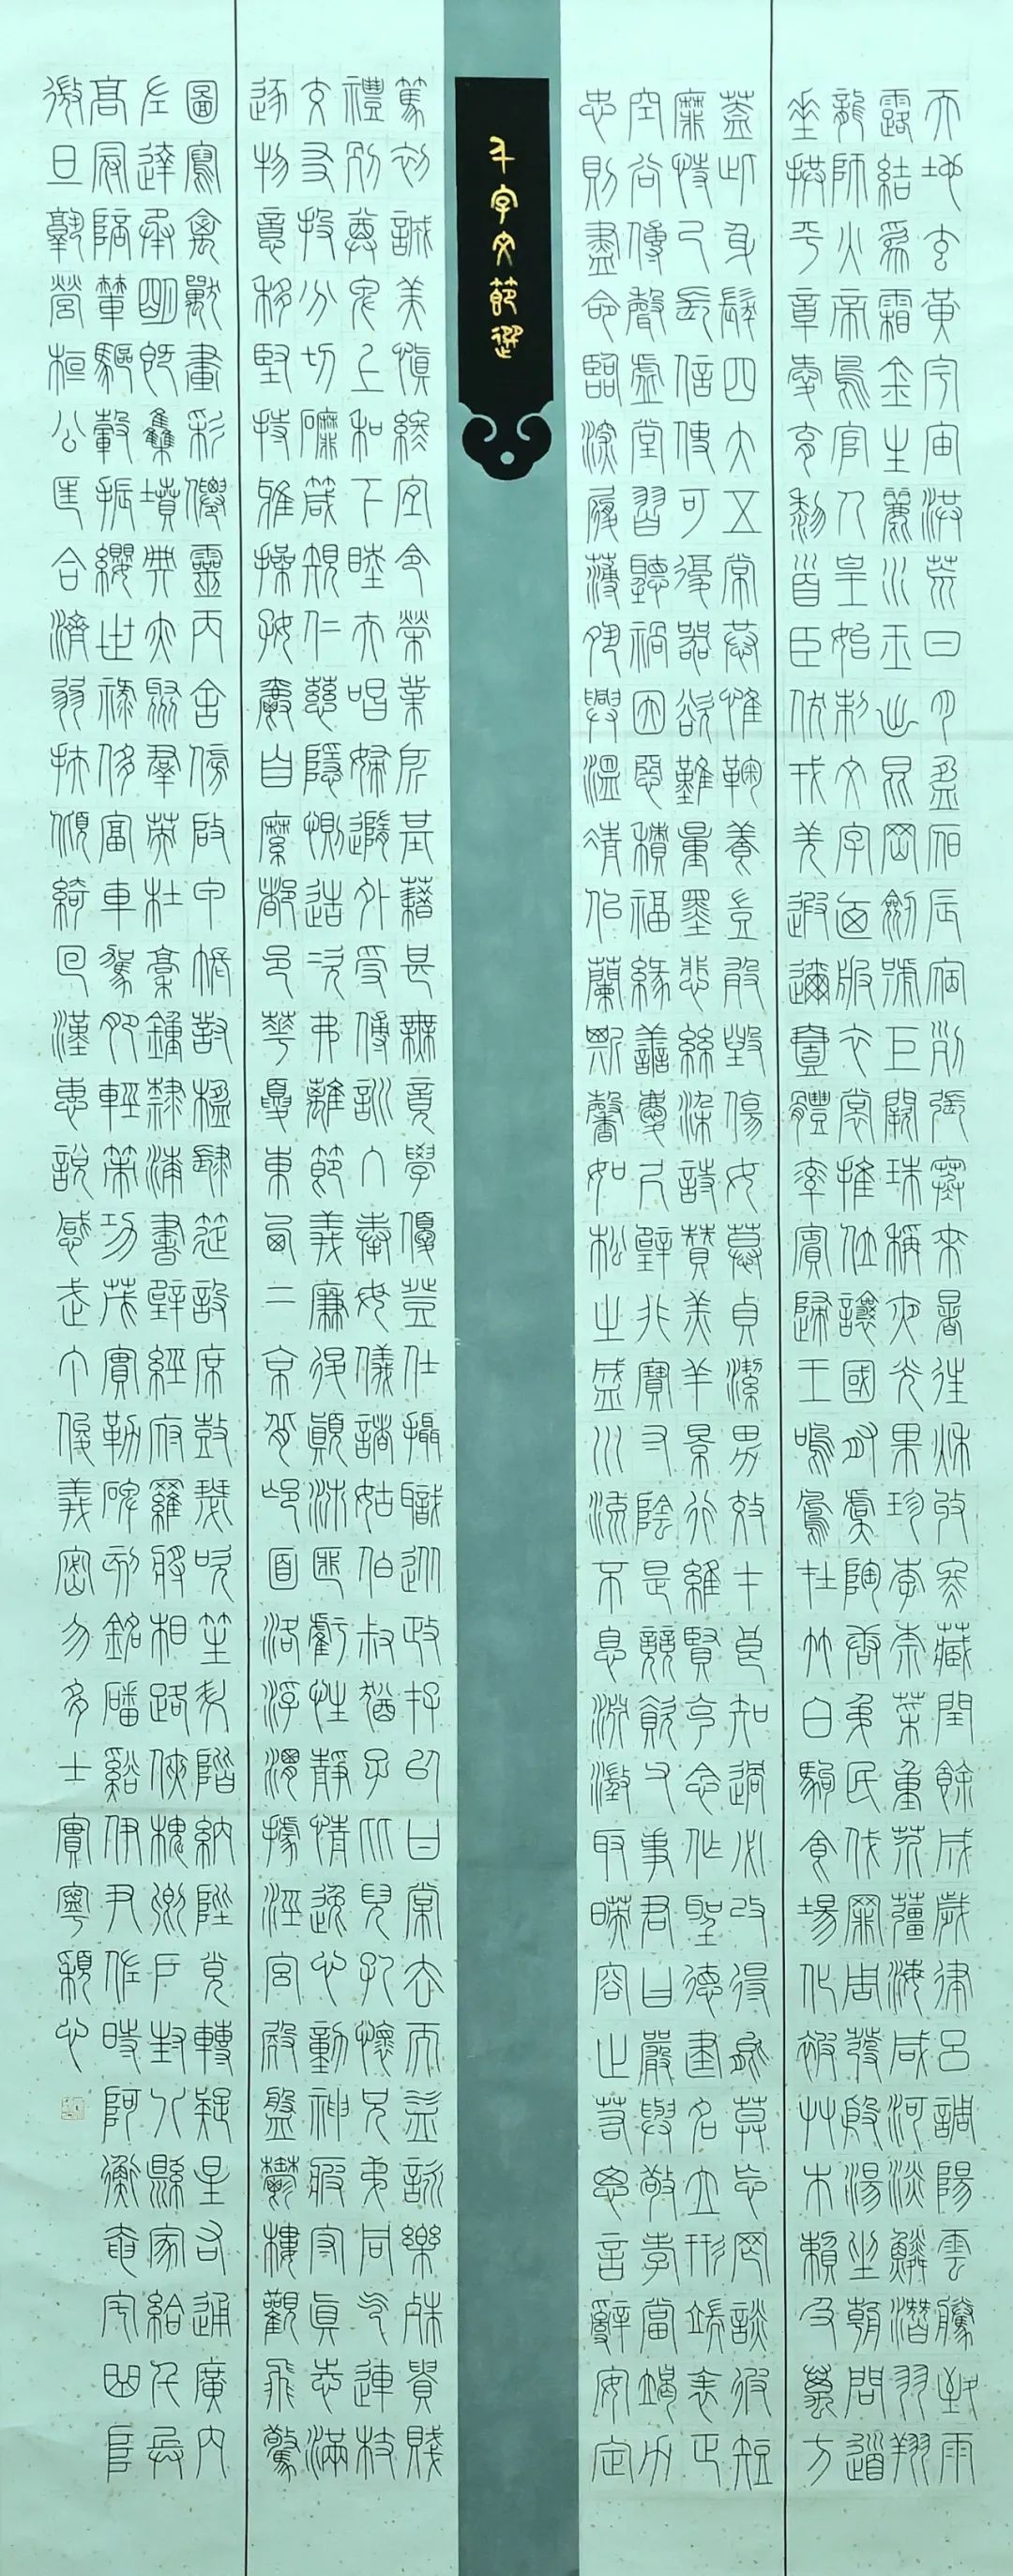 天地玄黃宇宙洪荒日月盈昃辰宿列張寒來暑往秋收冬藏閏餘成歲律呂調陽雲騰致雨
露結為霜金生麗水玉出崑岡劍號巨闕珠稱夜光果珍李柰菜重芥薑海鹹河淡鱗潛羽翔
龍師火帝鳥官人皇始制文字乃服衣裳推位讓國有虞陶唐弔民伐罪周發殷湯坐朝問道
垂拱平章愛育黎首臣伏戎羌遐邇壹體率賓歸王鳴鳳在竹白駒食場化被草木賴及萬方
蓋此身髮四大五常恭惟鞠養豈敢毀傷女慕貞潔男效才良知過必改得能莫忘罔談彼短
靡恃己長信使可覆器欲難量墨悲絲染詩贊羔羊景行維賢克念作聖德建名立形端表正
空谷傳聲虛堂習聽禍因惡積福緣善慶尺璧非寶寸陰是競資父事君曰嚴與敬孝當竭力
忠則盡命臨深履薄夙興溫凊似蘭斯馨如松之盛川流不息淵澄取映容止若思言辭安定
千字文節選
篤初誠美慎終宜令榮業所基藉甚無竟學優登仕攝職從政存以甘棠去而益詠樂殊貴賤
禮別尊卑上和下睦夫唱婦隨外受傅訓入奉母儀諸姑伯叔猶子比兒孔懷兄弟同氣連枝
交友投分切磨箴規仁慈隱惻造次弗離節義廉退顛沛匪虧性靜情逸心動神疲守真志滿
逐物意移堅持雅操好爵自縻都邑華夏東西二京背邙面洛浮渭據涇宮殿盤鬱樓觀飛驚
圖寫禽獸畫彩僊靈丙舍傍啟甲帳對楹肆筵設席鼓瑟吹笙升階納陛弁轉疑星右通廣內
左達承明既集墳典亦聚群英杜稾鍾隸漆書壁經府羅將相路俠槐卿戶封八縣家給千兵
高冠陪輦驅轂振纓世祿侈富車駕肥輕策功茂實勒碑刻銘磻谿伊尹佐時阿衡奄宅曲阜
微旦孰營桓公匡合濟弱扶傾綺回漢惠說感武丁俊乂密勿多士實寧